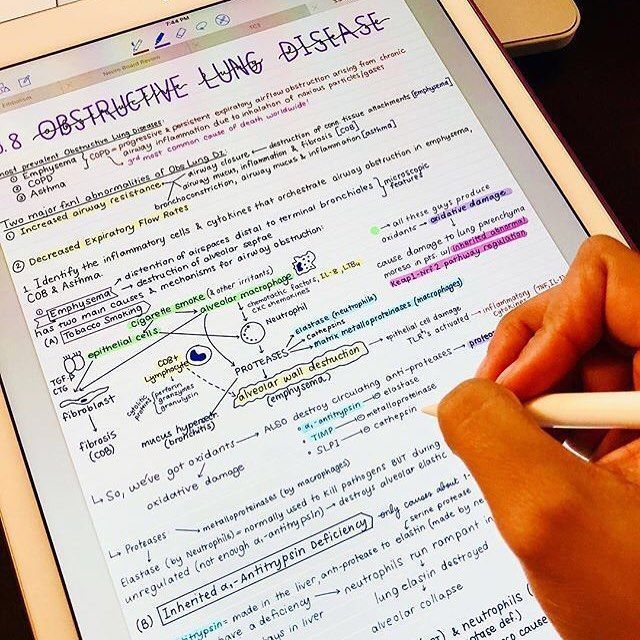 7:44 PM
Embolism
Neuro Board Review
TC3
.8 OBSTRUCTIVE LUNG DISEASE
most prevalent Obstructive Lung Diseases:
① Emphysema
② COPD
③ Asthma
COPD = progressive & persistent expiratory airflow obstruction arising from chronic
airway inflammation due to inhalation of noxious particles/gases
3rd most common cause of death worldwide!
Two major fxnl abnormalities of Obs Lung Dz:
① Increased airway resistance
airway closure ← destruction of conn tissue attachments [emphysema]
airway mucus, inflammation & fibrosis [COB]
bronchoconstriction, airway mucus & inflammation [asthma]
② Decreased Expiratory Flow Rates
1. Identify the inflammatory cells & cytokines that orchestrate airway obstruction in emphysema,
COB & Asthma.
① Emphysema
→ distention of airspaces distal to terminal bronchioles
→ destruction of alveolar septae
microscopic features
has two main causes & mechanisms for airway obstruction:
(A) Tobacco Smoking
→ all these guys produce
oxidants → oxidative damage
cause damage to lung parenchyma
moreso in pts. w/ inherited abnormal
Keap1-Nrf2 pathway regulation
cigarette smoke (& other irritants)
epithelial cells
alveolar macrophage
chemotactic factors, IL-8, LTB4
CXC chemokines
Neutrophil
TGF-β
CTG
fibroblast
fibrosis
(COB)
CD8+
Lymphocyte
cytotoxic proteins (perforins
granzymes
granulysin
mucus hypersecn
(bronchitis)
PROTEASES
elastase (neutrophils)
cathepsins
matrix metalloproteinases (macrophages)
alveolar wall destruction
(emphysema)
→ epithelial cell damage
TLR's activated → inflammatory
cytokines (TNF, IL-1
↳ So, we've got oxidants → ALSO destroy circulating anti-proteases →
oxidative damage
• α1-antitrypsin ⊖ elastase
• TIMP ⊖ metalloproteinase
• SLPI ⊖ cathepsin
↳ Proteases → metalloproteinases (by macrophages)
Elastase (by Neutrophils) = normally used to kill pathogens BUT during
unregulated (not enough α1-antitrypsin) → destroys alveolar elastic
(B) Inherited α1-Antitrypsin Deficiency
only causes about 1-
serine protease
antitrypsin - made in the liver, anti-protease to elastin (made by ne
have a deficiency → neutrophils run rampant in
in liver
lung elastin destroyed
alveolar collapse
) & neutrophils (
def.)